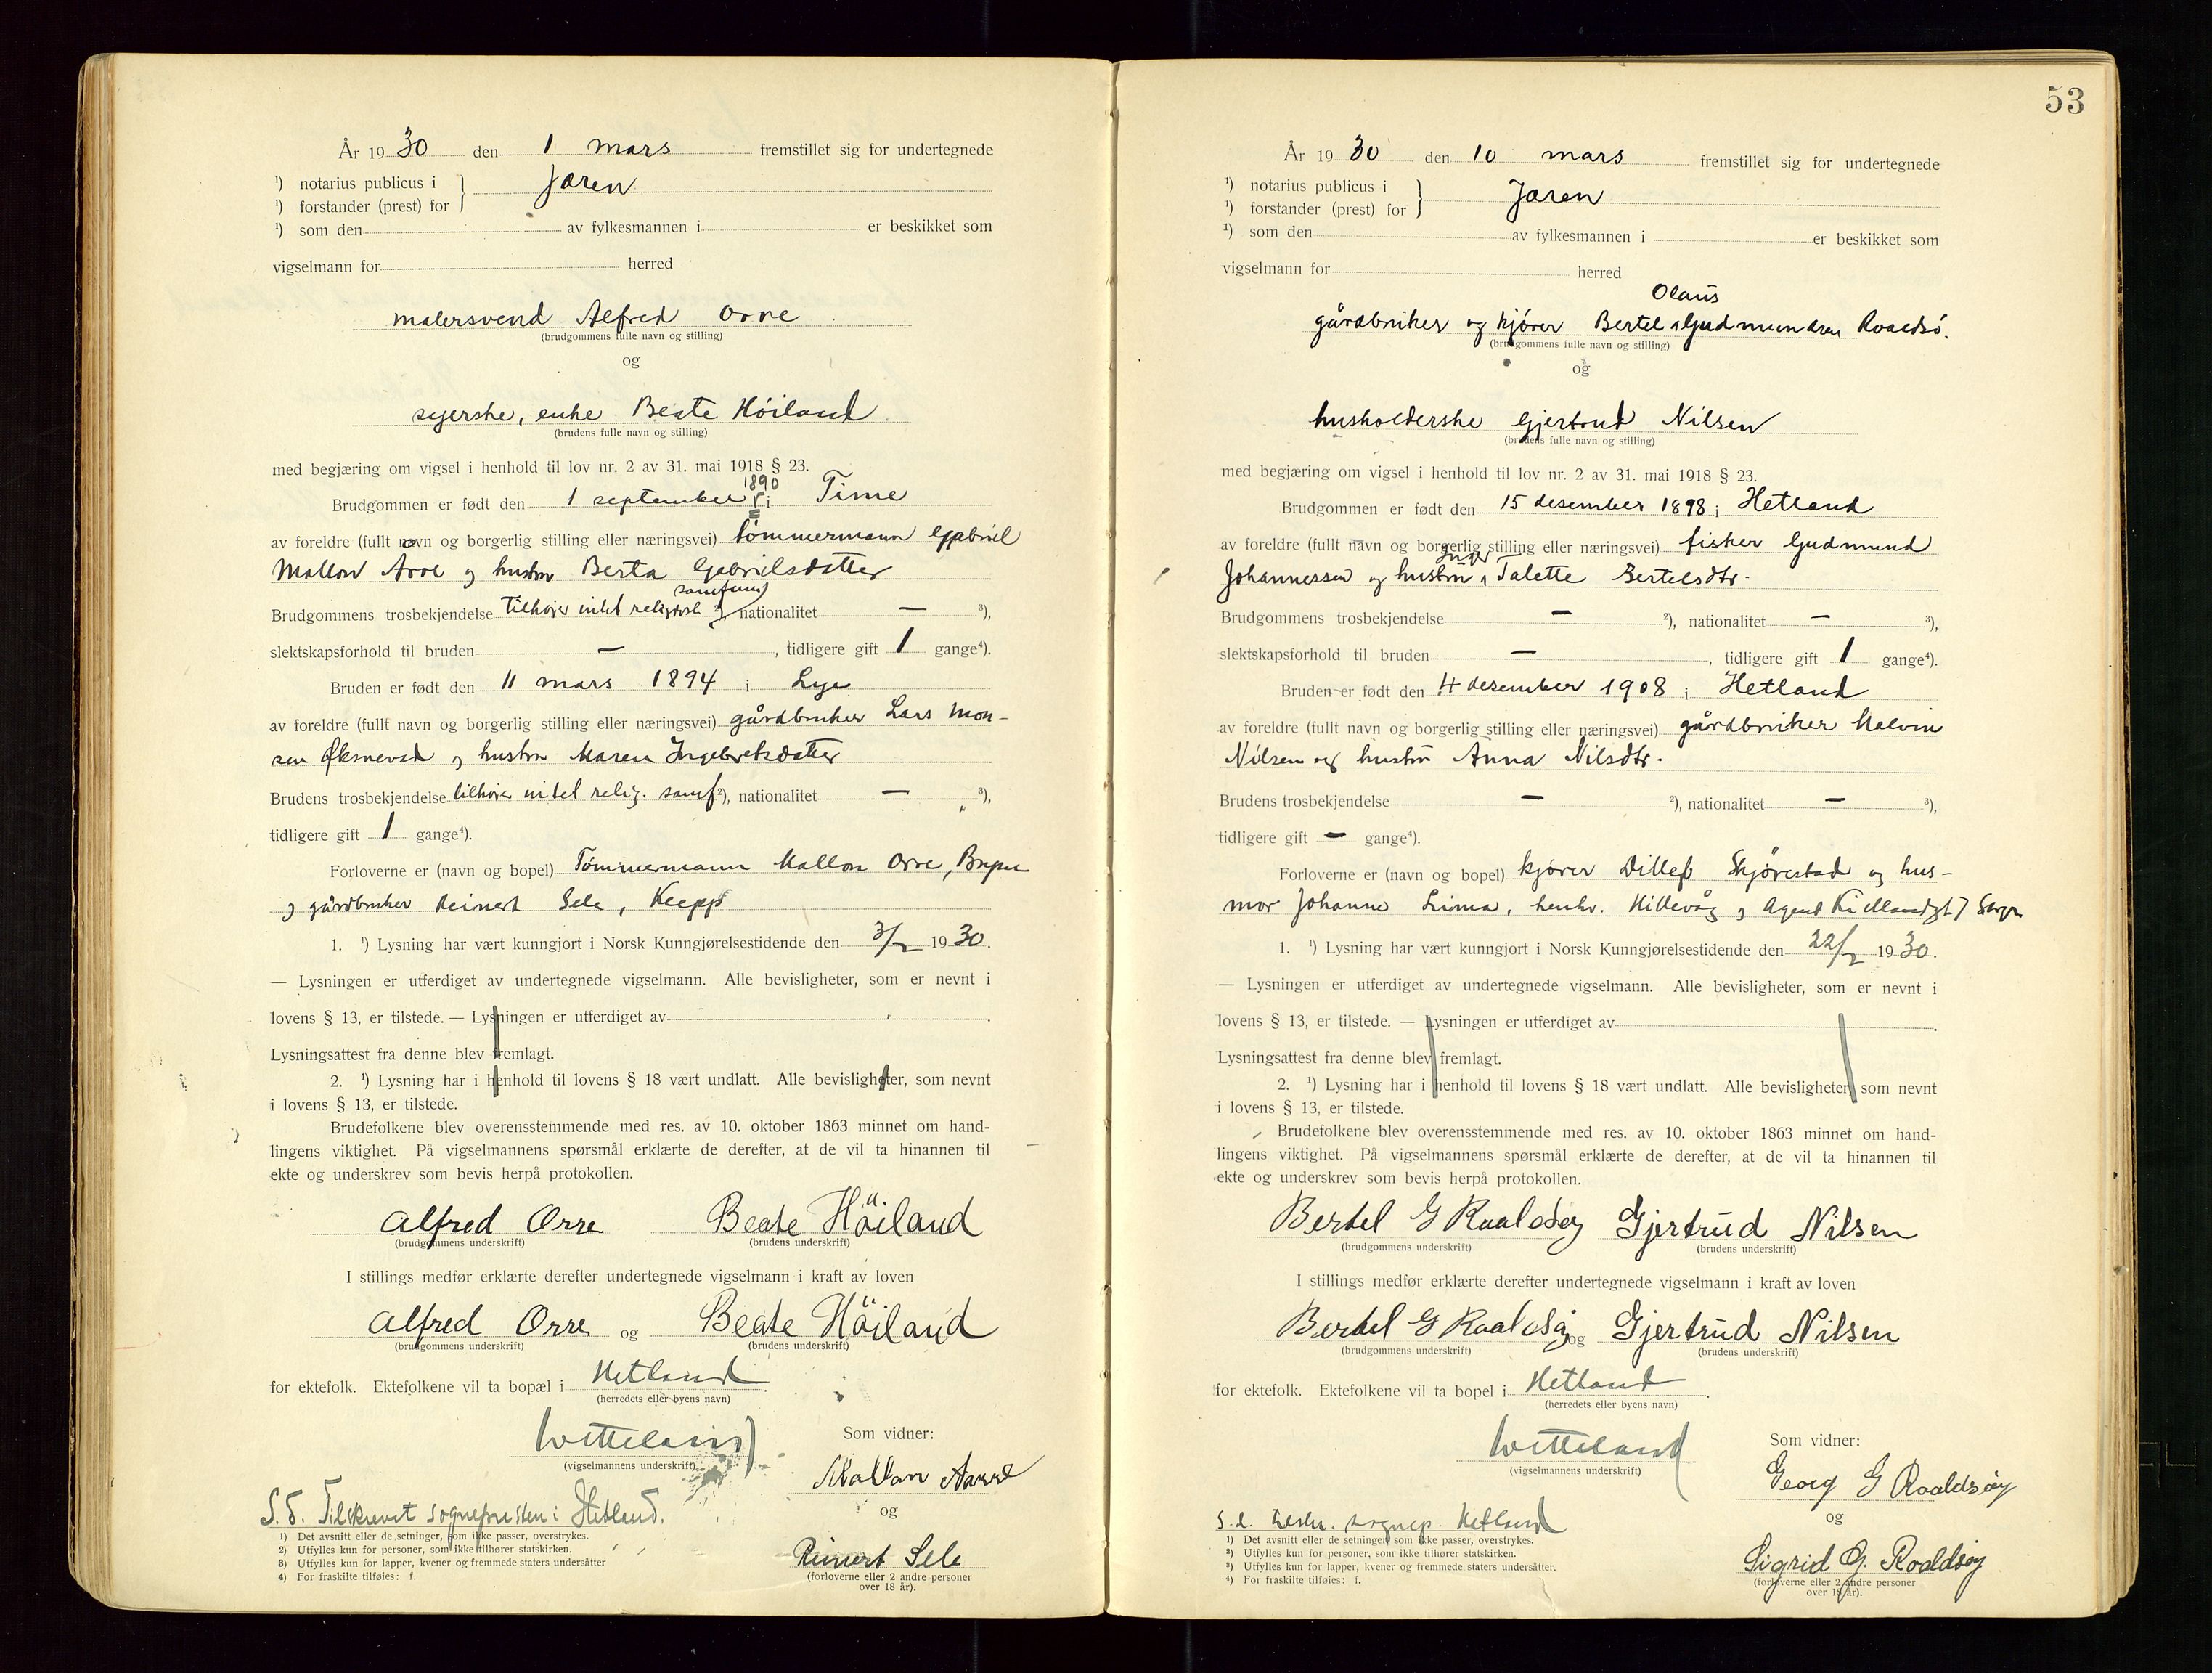 År 1930 den 1 mars fremstillet sig for undertegnede
¹) notarius publicus i
¹) forstander (prest) for } Jæren
¹) som den av fylkesmannen i er beskikket som
vigselmann for herred
malersvend Alfred Orre
(brudgommens fulle navn og stilling)
og
syerske, enke Beate Höiland
(brudens fulle navn og stilling)
med begjæring om vigsel i henhold til lov nr. 2 av 31. mai 1918 § 23.
Brudgommen er født den 1 september 1890 i Time
av foreldre (fullt navn og borgerlig stilling eller næringsvei) tømmermann Gabriel
Mallon Arre og hustru Berta Gabrielsdatter
Brudgommens trosbekjendelse tilhører intet religiøst samfund ²), nationalitet — ³),
slektskapsforhold til bruden — , tidligere gift 1 gange⁴).
Bruden er født den 11 mars 1894 i Lye
av foreldre (fullt navn og borgerlig stilling eller næringsvei) gårdbruker Lars Mon-
sen Øksnevad og hustru Maren Ingebretsdatter
Brudens trosbekjendelse tilhører intet relig. samf ²), nationalitet — ³),
tidligere gift 1 gange⁴).
Forloverne er (navn og bopel) Tømmermann Mallon Orre, Bryne
og gårdbruker Reinert Sele, Klepp
1. ¹) Lysning har vært kunngjort i Norsk Kunngjørelsestidende den 3/2 1930.
— Lysningen er utferdiget av undertegnede vigselmann. Alle bevisligheter, som er nevnt i
lovens § 13, er tilstede. — Lysningen er utferdiget av .
Lysningsattest fra denne blev fremlagt.
2. ¹) Lysning har i henhold til lovens § 18 vært undlatt. Alle bevisligheter, som nevnt
i lovens § 13, er tilstede.
Brudefolkene blev overensstemmende med res. av 10. oktober 1863 minnet om hand-
lingens viktighet. På vigselmannens spørsmål erklærte de derefter, at de vil ta hinannen til
ekte og underskrev som bevis herpå protokollen.
Alfred Orre Beate Höiland
(brudgommens underskrift) (brudens underskrift)
I stillings medfør erklærte derefter undertegnede vigselmann i kraft av loven
Alfred Orre og Beate Höiland
(brudgommens underskrift) (brudens underskrift)
for ektefolk. Ektefolkene vil ta bopæl i Hetland.
(herredets eller byens navn)
Witteland
(vigselmannens underskrift)
Som vidner:
Mallon Aarre
og
S. d. Tilskrevet sognepresten i Hetland.
Reinert Sele
(forloverne eller 2 andre personer
over 18 år).
1) Det avsnitt eller de setninger, som ikke passer, overstrykes.
2) Utfylles kun for personer, som ikke tilhører statskirken.
3) Utfylles kun for lapper, kvener og fremmede staters undersåtter
4) For fraskilte tilføies: f.
53
År 1930 den 10 mars fremstillet sig for undertegnede
¹) notarius publicus i
¹) forstander (prest) for } Jæren
¹) som den av fylkesmannen i er beskikket som
vigselmann for herred
Olaus
gårdbruker og kjører Bertel Gudmundsen Roaldsø.
(brudgommens fulle navn og stilling)
og
husholderske Gjertrud Nilsen
(brudens fulle navn og stilling)
med begjæring om vigsel i henhold til lov nr. 2 av 31. mai 1918 § 23.
Brudgommen er født den 15 desember 1898 i Hetland
av foreldre (fullt navn og borgerlig stilling eller næringsvei) fisker Gudmund
Johannessen og hustru Inger Talette Bertelsdtr.
Brudgommens trosbekjendelse — ²), nationalitet — ³),
slektskapsforhold til bruden — , tidligere gift 1 gange⁴).
Bruden er født den 4 desember 1908 i Hetland
av foreldre (fullt navn og borgerlig stilling eller næringsvei) gårdbruker Malvin
Nilsen og hustru Anna Nilsdtr.
Brudens trosbekjendelse — ²), nationalitet — ³),
tidligere gift — gange⁴).
Forloverne er (navn og bopel) kjører Ditlef Skjørestad og hus-
mor Johanne Lima, henhv. Hillevåg og Agent Kiellandsgt 7 Stvgr
1. ¹) Lysning har vært kunngjort i Norsk Kunngjørelsestidende den 22/2 1930.
— Lysningen er utferdiget av undertegnede vigselmann. Alle bevisligheter, som er nevnt i
lovens § 13, er tilstede. — Lysningen er utferdiget av .
Lysningsattest fra denne blev fremlagt.
2. ¹) Lysning har i henhold til lovens § 18 vært undlatt. Alle bevisligheter, som nevnt
i lovens § 13, er tilstede.
Brudefolkene blev overensstemmende med res. av 10. oktober 1863 minnet om hand-
lingens viktighet. På vigselmannens spørsmål erklærte de derefter, at de vil ta hinannen til
ekte og underskrev som bevis herpå protokollen.
Bertel G Roaldsøy Gjertrud Nilsen
(brudgommens underskrift) (brudens underskrift)
I stillings medfør erklærte derefter undertegnede vigselmann i kraft av loven
Bertel G Roaldsøy og Gjertrud Nilsen
(brudgommens underskrift) (brudens underskrift)
for ektefolk. Ektefolkene vil ta bopel i Hetland.
(herredets eller byens navn)
Witteland
(vigselmannens underskrift)
Som vidner:
Georg G Roaldsøy
og
S. d. tilskr. sognepr. Hetland
Sigrid G. Roaldsøy
(forloverne eller 2 andre personer
over 18 år).
¹) Det avsnitt eller de setninger som ikke passer, overstrykes.
²) Utfylles kun for personer, som ikke tilhører statskirken.
³) Utfylles kun for lapper, kvener og fremmede staters undersåtter.
⁴) For fraskilte tilføies: f.